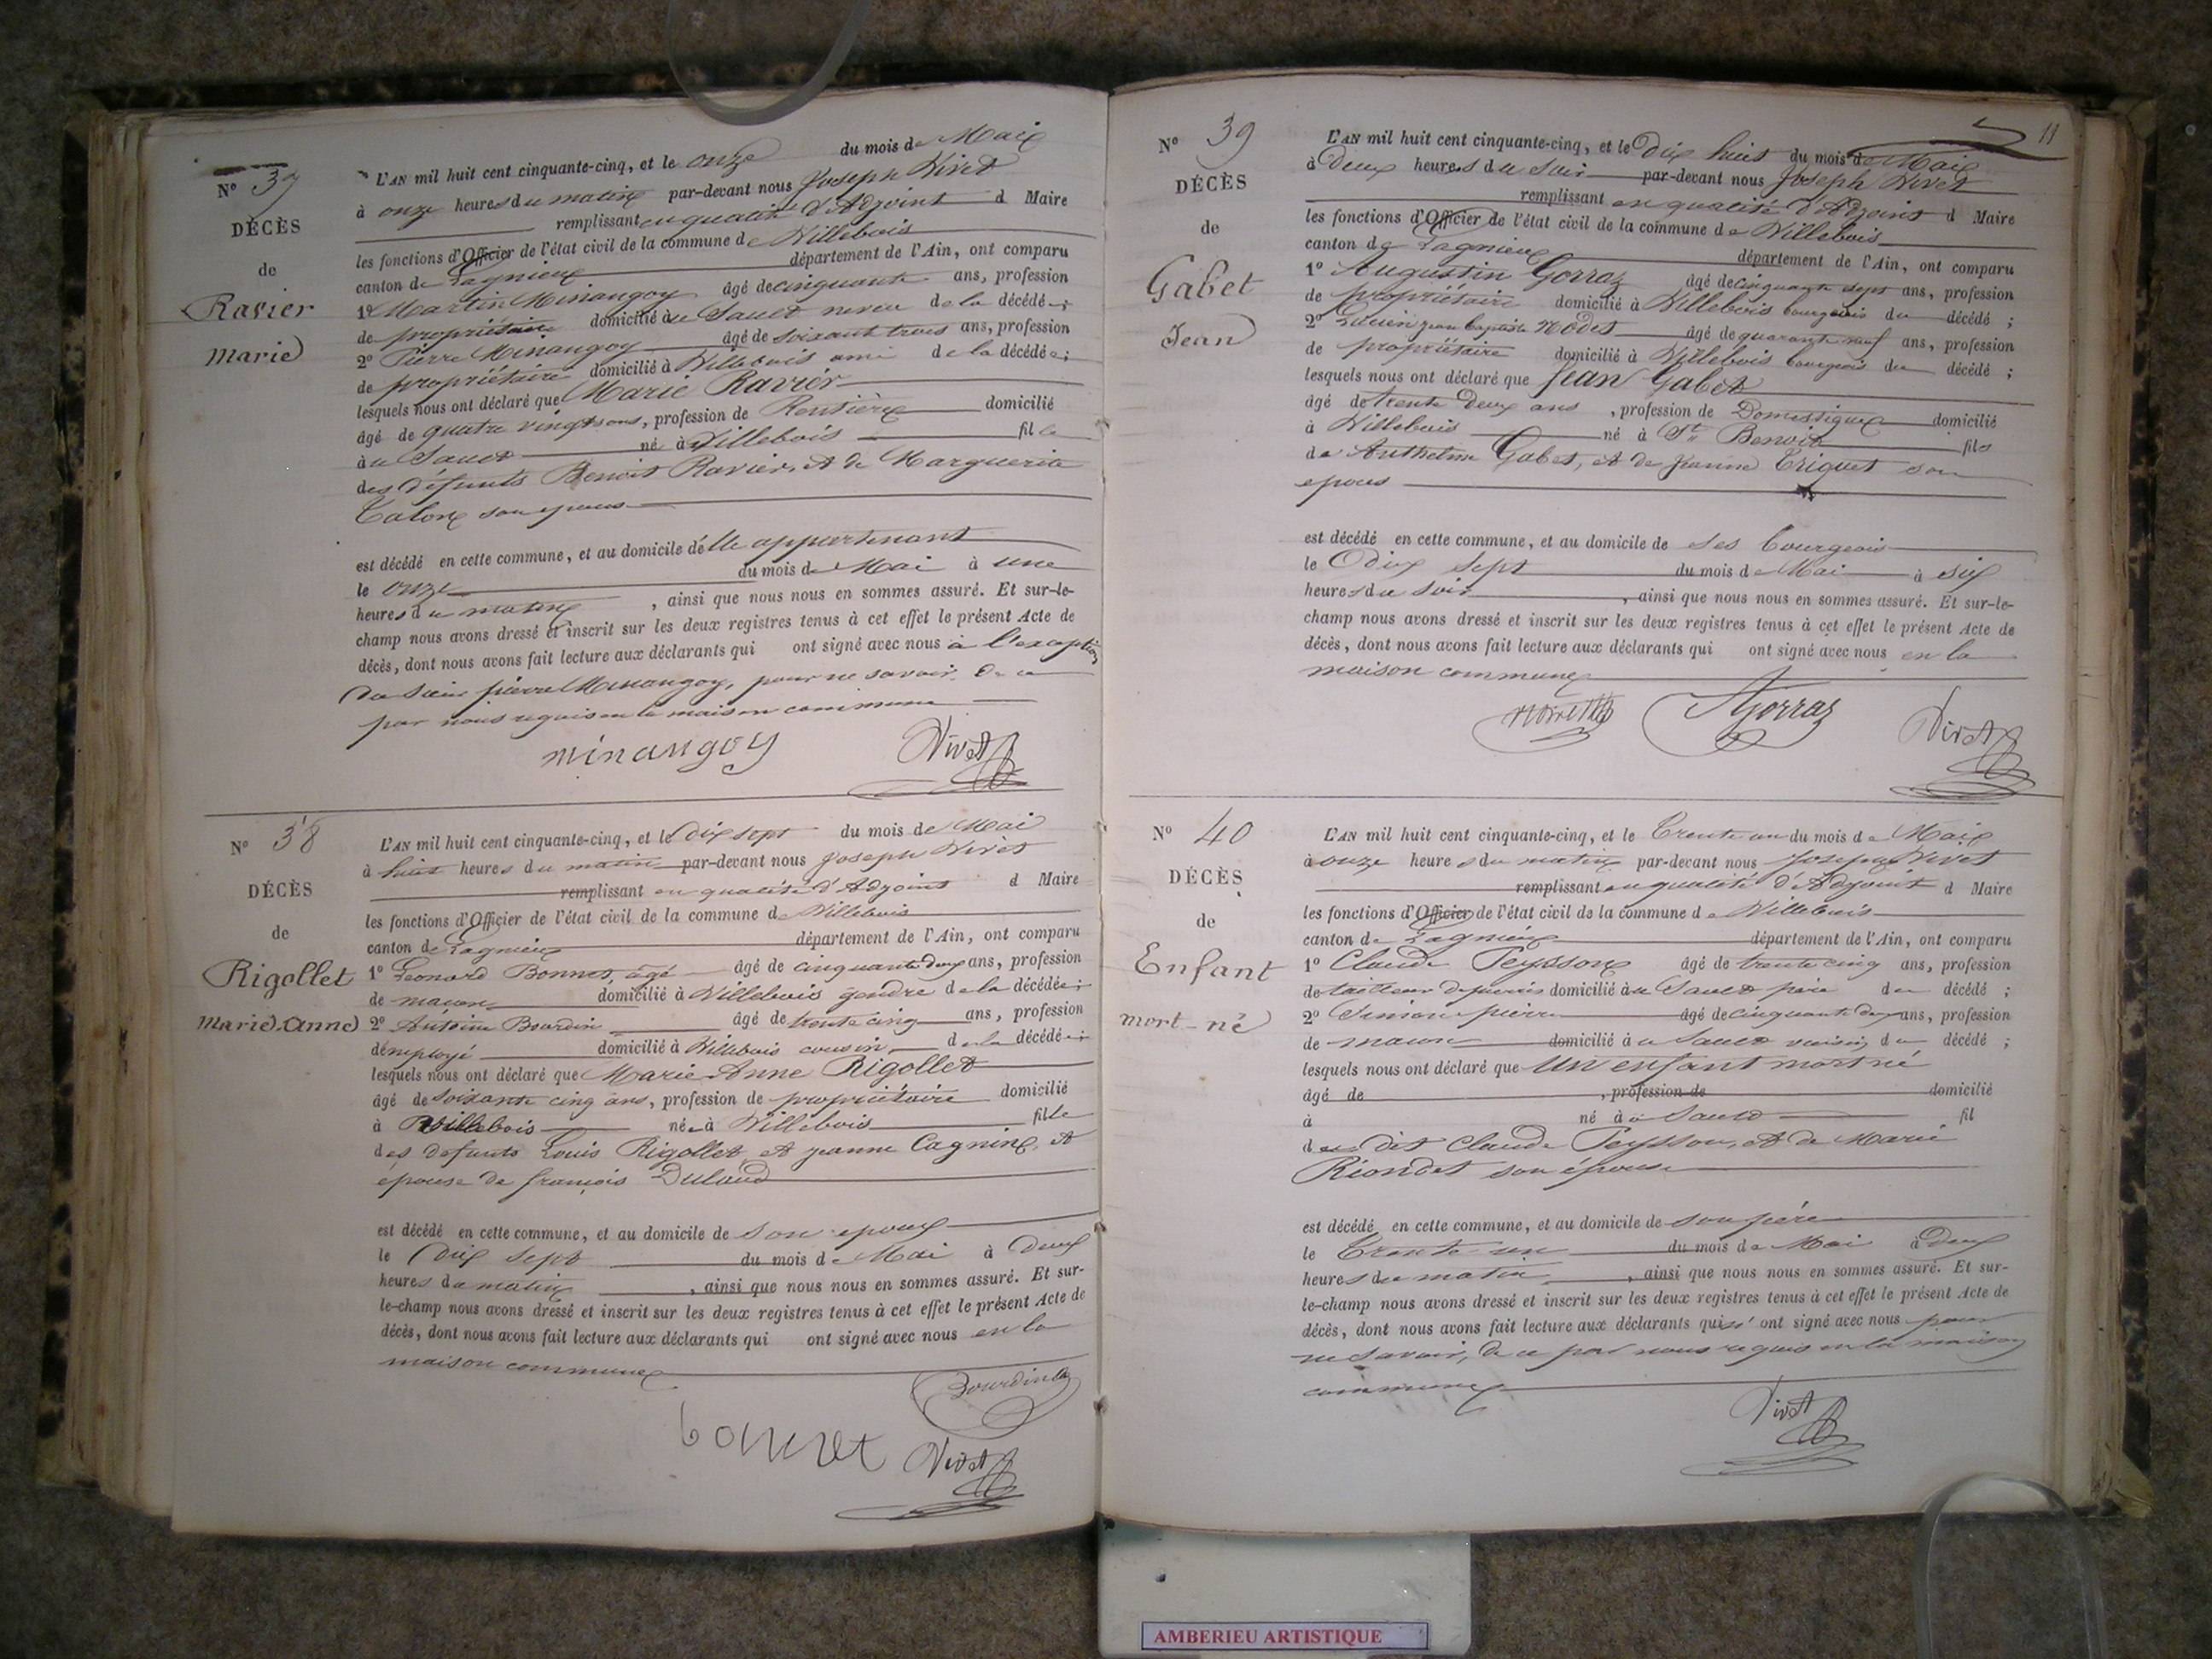 N° 37
DÉCÈS
de
Ravier
Marie
L'AN mil huit cent cinquante-cinq, et le onze du mois de Mai
à onze heures du matin par-devant nous Joseph Vivet
remplissant en qualité d'Adjoint d Maire
les fonctions d'Officier de l'état civil de la commune de Villebois
canton de Lagnieu département de l'Ain, ont comparu
1° Martin Minangoy âgé de cinquante ans, profession
de propriétaire domicilié au Sault neveu de la décédée;
2° Pierre Minangoy âgé de soixante trois ans, profession
de propriétaire domicilié à Villebois ami de la décédée;
lesquels nous ont déclaré que Marie Ravier
âgé de quatre vingts ans, profession de Rentière domicilié
au Sault né à Villebois fille
des défunts Benoit Ravier, et de Marguerite
Talon son epouse
est décédé en cette commune, et au domicile d'elle appartenant
le onze du mois de Mai à une
heures du matin, ainsi que nous nous en sommes assuré. Et sur-le-
champ nous avons dressé et inscrit sur les deux registres tenus à cet effet le présent Acte de
décès, dont nous avons fait lecture aux déclarants qui ont signé avec nous à l'exception
du Sieur pierre Minangoy, pour ne savoir, de ce
par nous requis en la maison commune
minangoy Vivet
N° 38
DÉCÈS
de
Rigollet
Marie-Anne
L'AN mil huit cent cinquante-cinq, et le dix sept du mois de Mai
à huit heures du matin par-devant nous Joseph Vivet
remplissant en qualité d'Adjoint d Maire
les fonctions d'Officier de l'état civil de la commune de Villebois
canton de Lagnieu département de l'Ain, ont comparu
1° Leonard Bonnet, âgé âgé de cinquante deux ans, profession
de maçon domicilié à Villebois gendre de la décédée;
2° Antoine Bourdin âgé de trente cinq ans, profession
d'employé domicilié à Villebois cousin de la décédée;
lesquels nous ont déclaré que Marie Anne Rigollet
âgé de soixante cinq ans, profession de propriétaire domicilié
à Villebois née à Villebois fille
des defunts Louis Rigollet et jeanne Cagnin, et
epouse de françois Dulaud
est décédé en cette commune, et au domicile de son epoux
le Dix sept du mois de Mai à Deux
heures du matin, ainsi que nous nous en sommes assuré. Et sur-
le-champ nous avons dressé et inscrit sur les deux registres tenus à cet effet le présent Acte de
décès, dont nous avons fait lecture aux déclarants qui ont signé avec nous en la
maison commune
Bourdin
bonnet Vivet
11
N° 39
DÉCÈS
de
Gabet
Jean
L'AN mil huit cent cinquante-cinq, et le Dix huit du mois de Mai
à Deux heures du soir par-devant nous Joseph Vivet
remplissant en qualité d'Adjoint d Maire
les fonctions d'Officier de l'état civil de la commune de Villebois
canton de Lagnieu département de l'Ain, ont comparu
1° Augustin Gorraz âgé de cinquante sept ans, profession
de propriétaire domicilié à Villebois bourgeois du décédé;
2° Lucien jean baptiste âgé de quarante neuf ans, profession
de propriétaire domicilié à Villebois bourgeois du décédé;
lesquels nous ont déclaré que Jean Gabet
âgé de trente deux ans, profession de Domestique domicilié
à Villebois né à St Benoit fils
de Anthelme Gabet, et de Jeanne Triquet son
epouse
est décédé en cette commune, et au domicile de ses bourgeois
le Dix sept du mois de Mai à six
heures du soir, ainsi que nous nous en sommes assuré. Et sur-le-
champ nous avons dressé et inscrit sur les deux registres tenus à cet effet le présent Acte de
décès, dont nous avons fait lecture aux déclarants qui ont signé avec nous en la
maison commune
AGorraz Vivet
N° 40
DÉCÈS
de
Enfant
mort-né
L'AN mil huit cent cinquante-cinq, et le Trente un du mois de Mai
à onze heures du matin par-devant nous Joseph Vivet
remplissant en qualité d'Adjoint d Maire
les fonctions d'Officier de l'état civil de la commune de Villebois
canton de Lagnieu département de l'Ain, ont comparu
1° Claude Peysson âgé de trente cinq ans, profession
de tailleur de pierres domicilié au Sault père du décédé;
2° Simon pierre âgé de cinquante deux ans, profession
de maçon domicilié au Sault voisin du décédé;
lesquels nous ont déclaré que un enfant mort né
âgé de, profession de domicilié
à né au Sault fil
du dit Claude Peysson, et de Marie
Riondet son épouse
est décédé en cette commune, et au domicile de son père
le Trente un du mois de Mai à Deux
heures du matin, ainsi que nous nous en sommes assuré. Et sur-
le-champ nous avons dressé et inscrit sur les deux registres tenus à cet effet le présent Acte de
décès, dont nous avons fait lecture aux déclarants qui n'ont signé avec nous pour
ne savoir, de ce par nous requis en la maison
commune
Vivet
AMBERIEU ARTISTIQUE